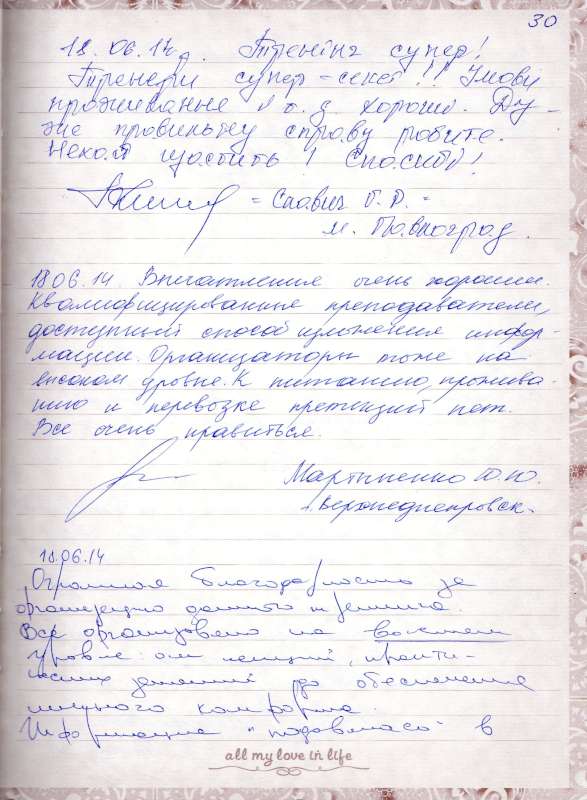 30
18.06.14р. Тренінг супер!
Тренери супер = сексі!! Умови
проживання і т.д. хороші. Ду-
же правильну справу робите.
Нехай щастить! Спасибі!
= Славич Г. Р. =
м. Павлоград.
18.06.14. Впечатления очень хорошии.
Квалифицированные преподаватели,
доступный способ изложения инфор-
мации. Организаторы тоже на
высоком уровне. К питанию, прожива-
нию и перевозке претензий нет.
Все очень нравиться.
Мартыненко Ю.Ю.
г. Верхнеднепровск.
18.06.14
Огромная благодарность за
организацию данного тренинга.
Все организовано на высшем
уровне: от лекций, практи-
ческих занятий до обеспечения
личного комфорта.
Информация "подавалась" в
all my love in life